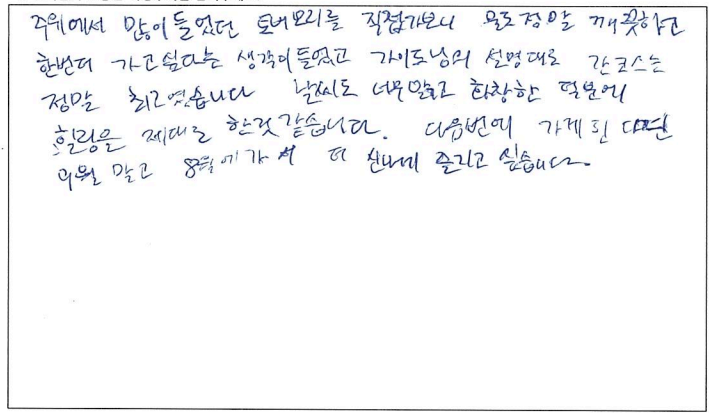 주위에서 많이 들었던 토버모리를 직접가보니 물도 정말 깨끗하고
한번더 가고 싶다는 생각이 들었고 가이드님의 설명대로 간 코스는
정말 최고였습니다 날씨도 너무 맑고 화창한 덕분에
힐링을 제대로 한것 같습니다. 다음번에 가게 된다면
9월 말고 8월에 가서 더 신나게 즐기고 싶습니다.